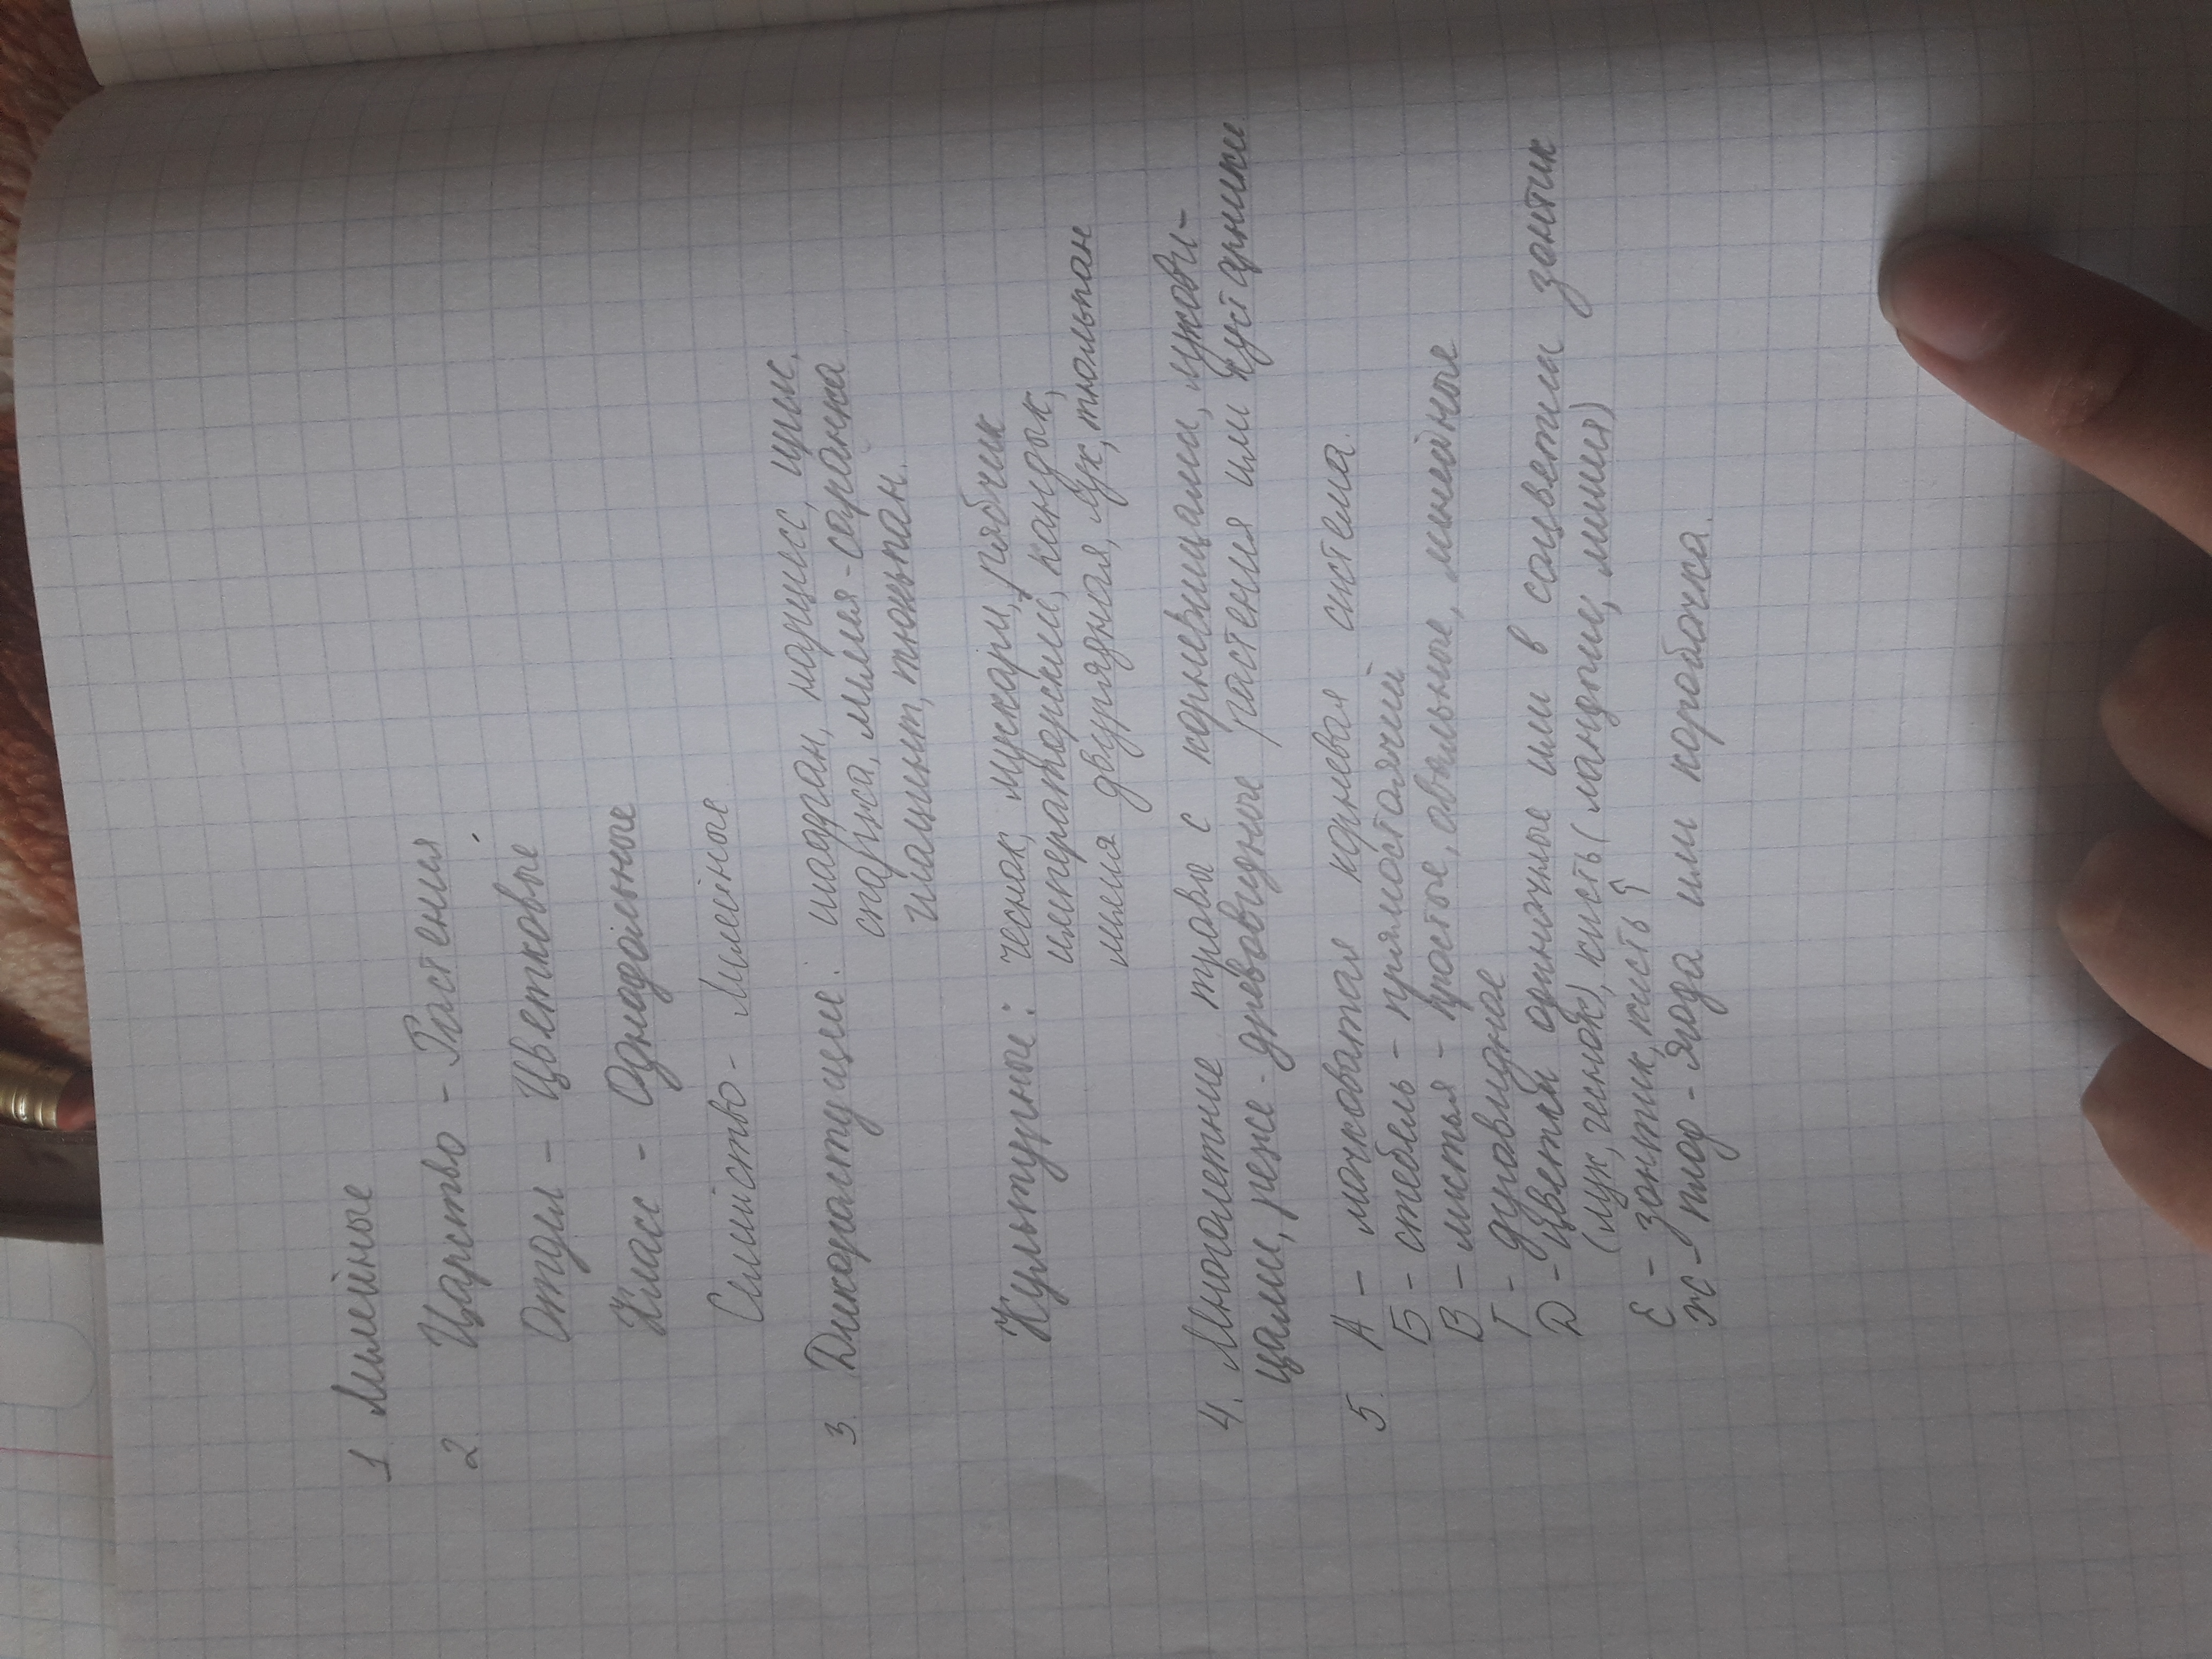 1 Лилейные
2. Царство - Растения
Отдел - Цветковые
Класс - Однодольные
Семейство - Лилейные
3. Дикорастущие: нарцисс,
спаржа, лилия-саранка
гиацинт, тюльпан.
Культурные: чеснок, мускари, рябчик
императорский, кандык,
лилия двурядная, лук, тюльпан
4. Многолетние травы с корневищами, лукови-
цами, реже - древовидные растения или кустарники
5. А - мочковатая корневая система.
Б - стебель - прямостоячий
В - листья - простые, овальные, линейные
Г - дуговидное
Д - Цветки одиночные или в соцветии зонтик
(лук, чеснок), кисть (ландыш, лилия)
Е - зонтик, кисть
ж - плод - Ягода или коробочка.